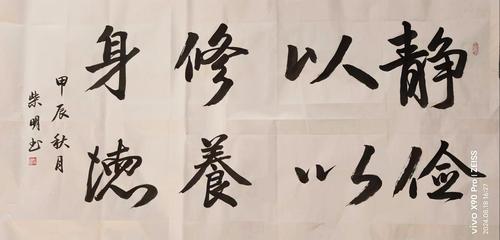 静以修身
俭以養德
甲辰秋月
柴明书
vivo X90 Pro | ZEISS
2024.08.18 16:27